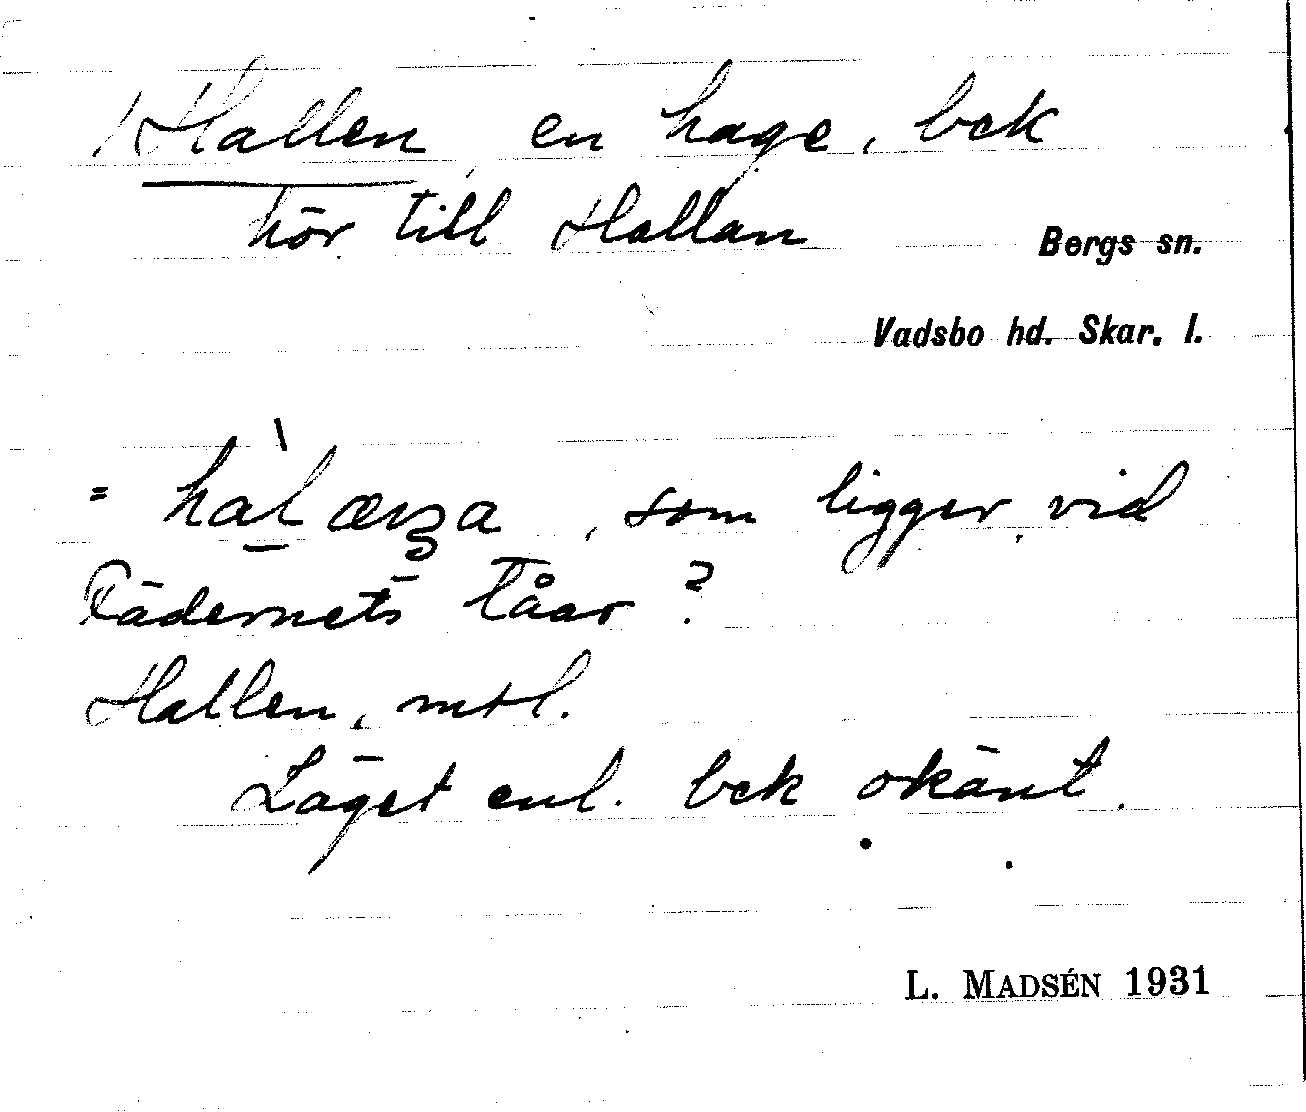 1 Hallen, en hage, bek
hör till Hallan
Bergs sn.
Vadsbo hd. Skar. l.
= hàlænʒa, som ligger vid
Fädernets tåar ?
Hallen, mtl.
Läget enl. bek okänt.
L. MADSÉN 1931